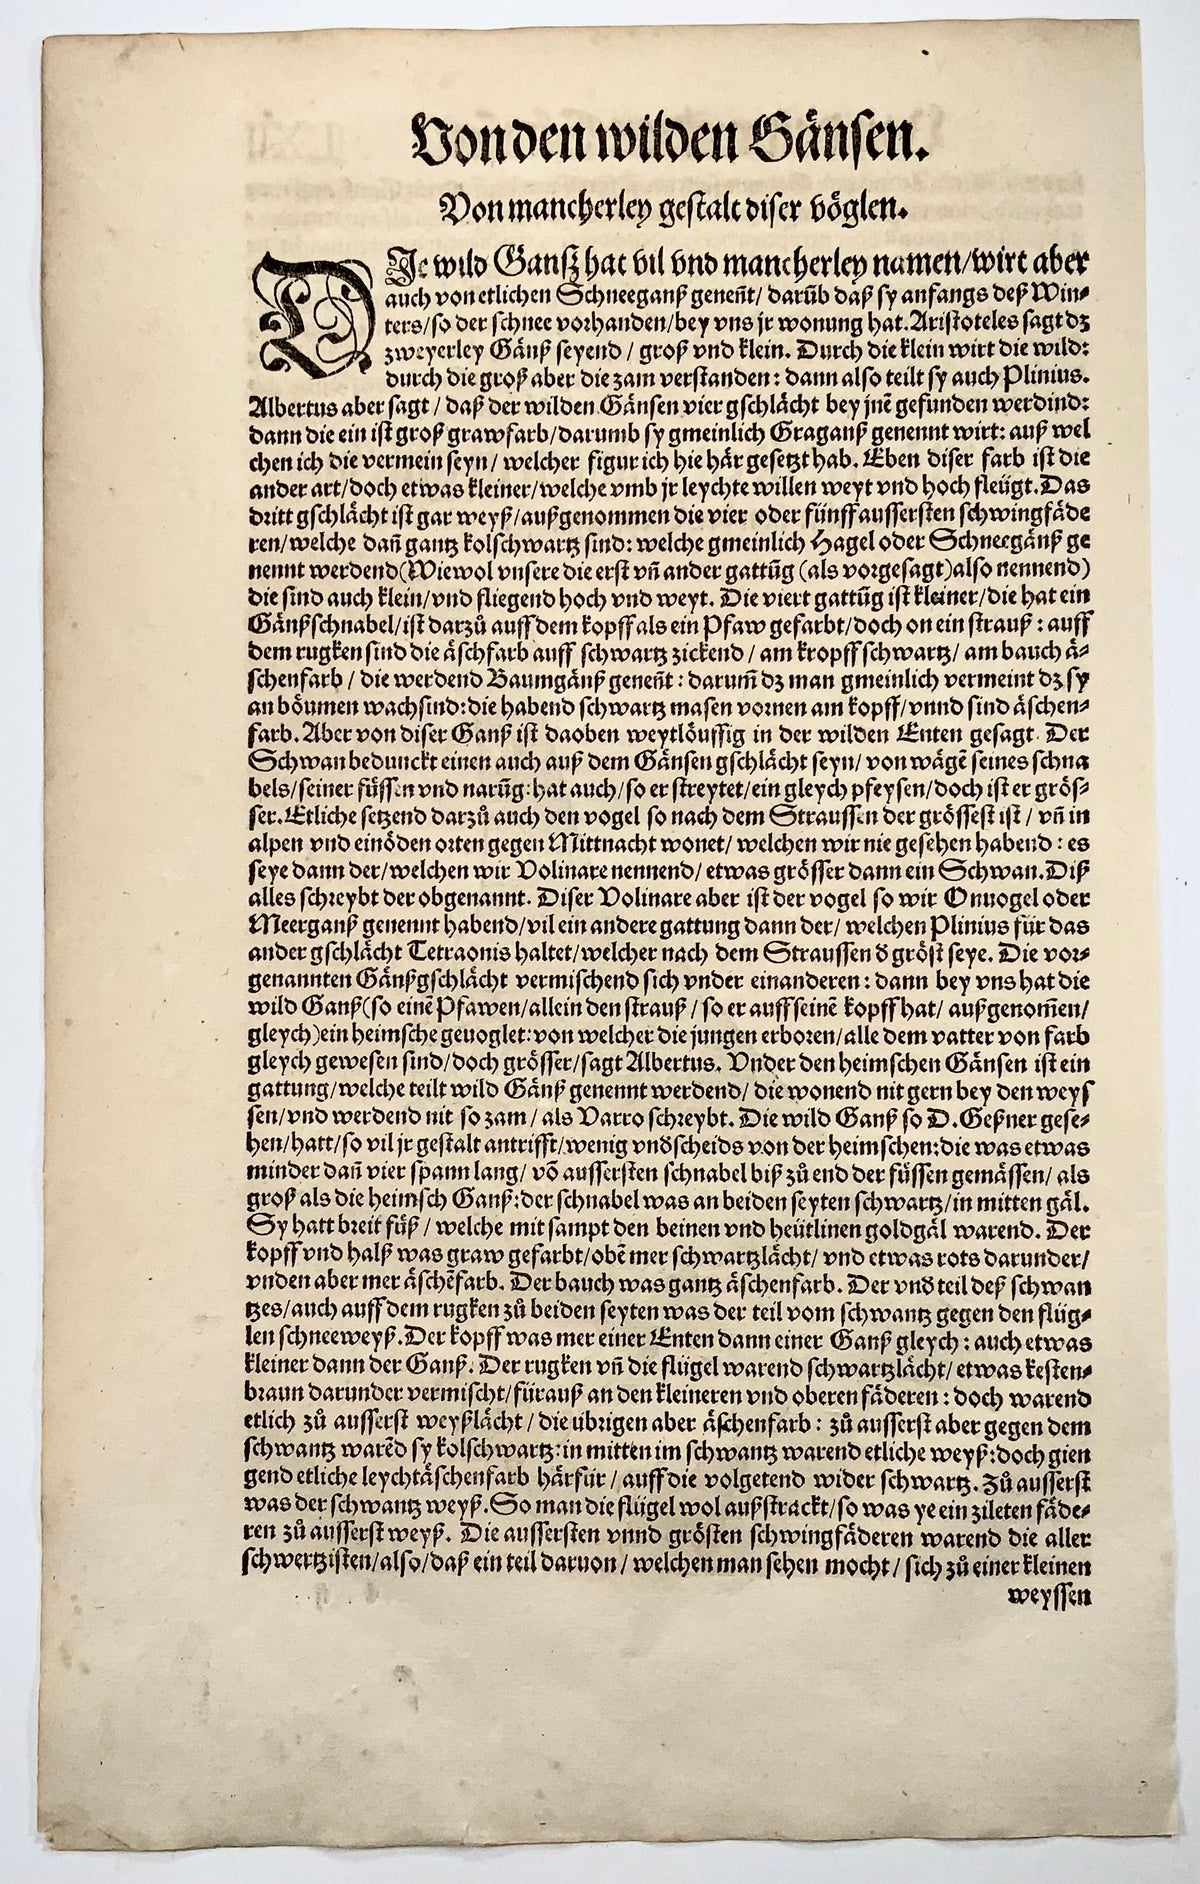 Von den wilden Gänsen.
Von mancherley gestalt diser vöglen.
DIe wild Ganß hat vil vnd mancherley namen/wirt aber
auch von etlichen Schneeganß geneñt/ darũb daß sy anfangs deß Win⸗
ters/so der schnee vorhanden/bey vns jr wonung hat. Aristoteles sagt dz
zweyerley Gänß seyend / groß vnd klein. Durch die klein wirt die wild:
durch die groß aber die zam verstanden: dann also teilt sy auch Plinius.
Albertus aber sagt / daß der wilden Gänsen vier gschlächt bey jnē gefunden werdind:
dann die ein ist groß grawfarb/darumb sy gmeinlich Graganß genennt wirt: auß wel
chen ich die vermein seyn/ welcher figur ich hie här gesetzt hab. Eben diser farb ist die
ander art/doch etwas kleiner/welche vmb jr leychte willen weyt vnd hoch fleügt. Das
dritt gschlächt ist gar weyß/außgenommen die vier oder fünff aussersten schwingfäde
ren/welche dañ gantz kolschwartz sind: welche gmeinlich Hagel oder Schneegänß ge
nennt werdend(Wiewol vnsere die erst vñ ander gattũg (als vorgesagt)also nennend)
die sind auch klein/vnd fliegend hoch vnd weyt. Die viert gattũg ist kleiner/die hat ein
Gänßschnabel/ist darzů auff dem kopff als ein Pfaw gefarbt/doch on ein strauß : auff
dem rugken sind die äschfarb auff schwartz zickend / am kropff schwartz/ am bauch ä⸗
schenfarb / die werdend Baumgänß geneñt : darum̃ dz man gmeinlich vermeint dz sy
an böumen wachsind: die habend schwartz masen vornen am kopff/vnnd sind äschen⸗
farb. Aber von diser Ganß ist daoben weytlöuffig in der wilden Enten gesagt. Der
Schwan bedunckt einen auch auß dem Gänsen gschlächt seyn/ von wägē seines schna
bels/seiner füssen vnd narũg: hat auch/so er streytet/ein gleych pfeysen/doch ist er grös⸗
ser. Etliche setzend darzů auch den vogel so nach dem Straussen der grössest ist / vñ in
alpen vnd einöden orten gegen Mittnacht wonet/ welchen wir nie gesehen habend : es
seye dann der/welchen wir Volinare nennend/ etwas grösser dann ein Schwan. Diß
alles schreybt der obgenannt. Diser Volinare aber ist der vogel so wir Onuogel oder
Meerganß genennt habend/vil ein andere gattung dann der/ welchen Plinius für das
ander gschlächt Tetraonis haltet/welcher nach dem Straussen d̃ gröst seye. Die vor⸗
genannten Gänßgschlächt vermischend sich vnder einanderen : dann bey vns hat die
wild Ganß(so einē Pfawen/allein den strauß / so er auff seinē kopff hat/ außgenom̃en/
gleych)ein heimsche geuoglet: von welcher die jungen erboren/alle dem vatter von farb
gleych gewesen sind/doch grösser/sagt Albertus. Vnder den heimschen Gänsen ist ein
gattung/welche teilt wild Gänß genennt werdend/ die wonend nit gern bey den weys
sen/vnd werdend nit so zam / als Varro schreybt. Die wild Ganß so D. Geßner gese⸗
hen/hatt/so vil jr gestalt antrifft/wenig vnd̃scheids von der heimschen: die was etwas
minder dañ vier spann lang/ võ aussersten schnabel biß zů end der füssen gemässen/ als
groß als die heimsch Ganß: der schnabel was an beiden seyten schwartz/in mitten gäl.
Sy hatt breit füß / welche mit sampt den beinen vnd heütlinen goldgäl warend. Der
kopff vnd halß was graw gefarbt/obē mer schwartzlächt/ vnd etwas rots darunder/
vnden aber mer äschēfarb. Der bauch was gantz äschenfarb. Der vnd̃ teil deß schwan
tzes/auch auff dem rugken zů beiden seyten was der teil vom schwantz gegen den flüg⸗
len schneeweyß. Der kopff was mer einer Enten dann einer Ganß gleych : auch etwas
kleiner dann der Ganß. Der rugken vñ die flügel warend schwartzlächt/ etwas kesten⸗
braun darunder vermischt/fürauß an den kleineren vnd oberen fäderen : doch warend
etlich zů ausserst weyßlächt / die übrigen aber äschenfarb : zů ausserst aber gegen dem
schwantz warēd sy kolschwartz: in mitten im schwantz warend etliche weyß: doch gien
gend etliche leychtäschenfarb härfür / auff die volgetend wider schwartz. Zů ausserst
was der schwantz weyß. So man die flügel wol außstrackt/so was ye ein zileten fäde⸗
ren zů ausserst weyß. Die aussersten vnnd grösten schwingfäderen warend die aller
schwertzisten/also/daß ein teil daruon / welchen man sehen mocht / sich zů einer kleinen
weyssen